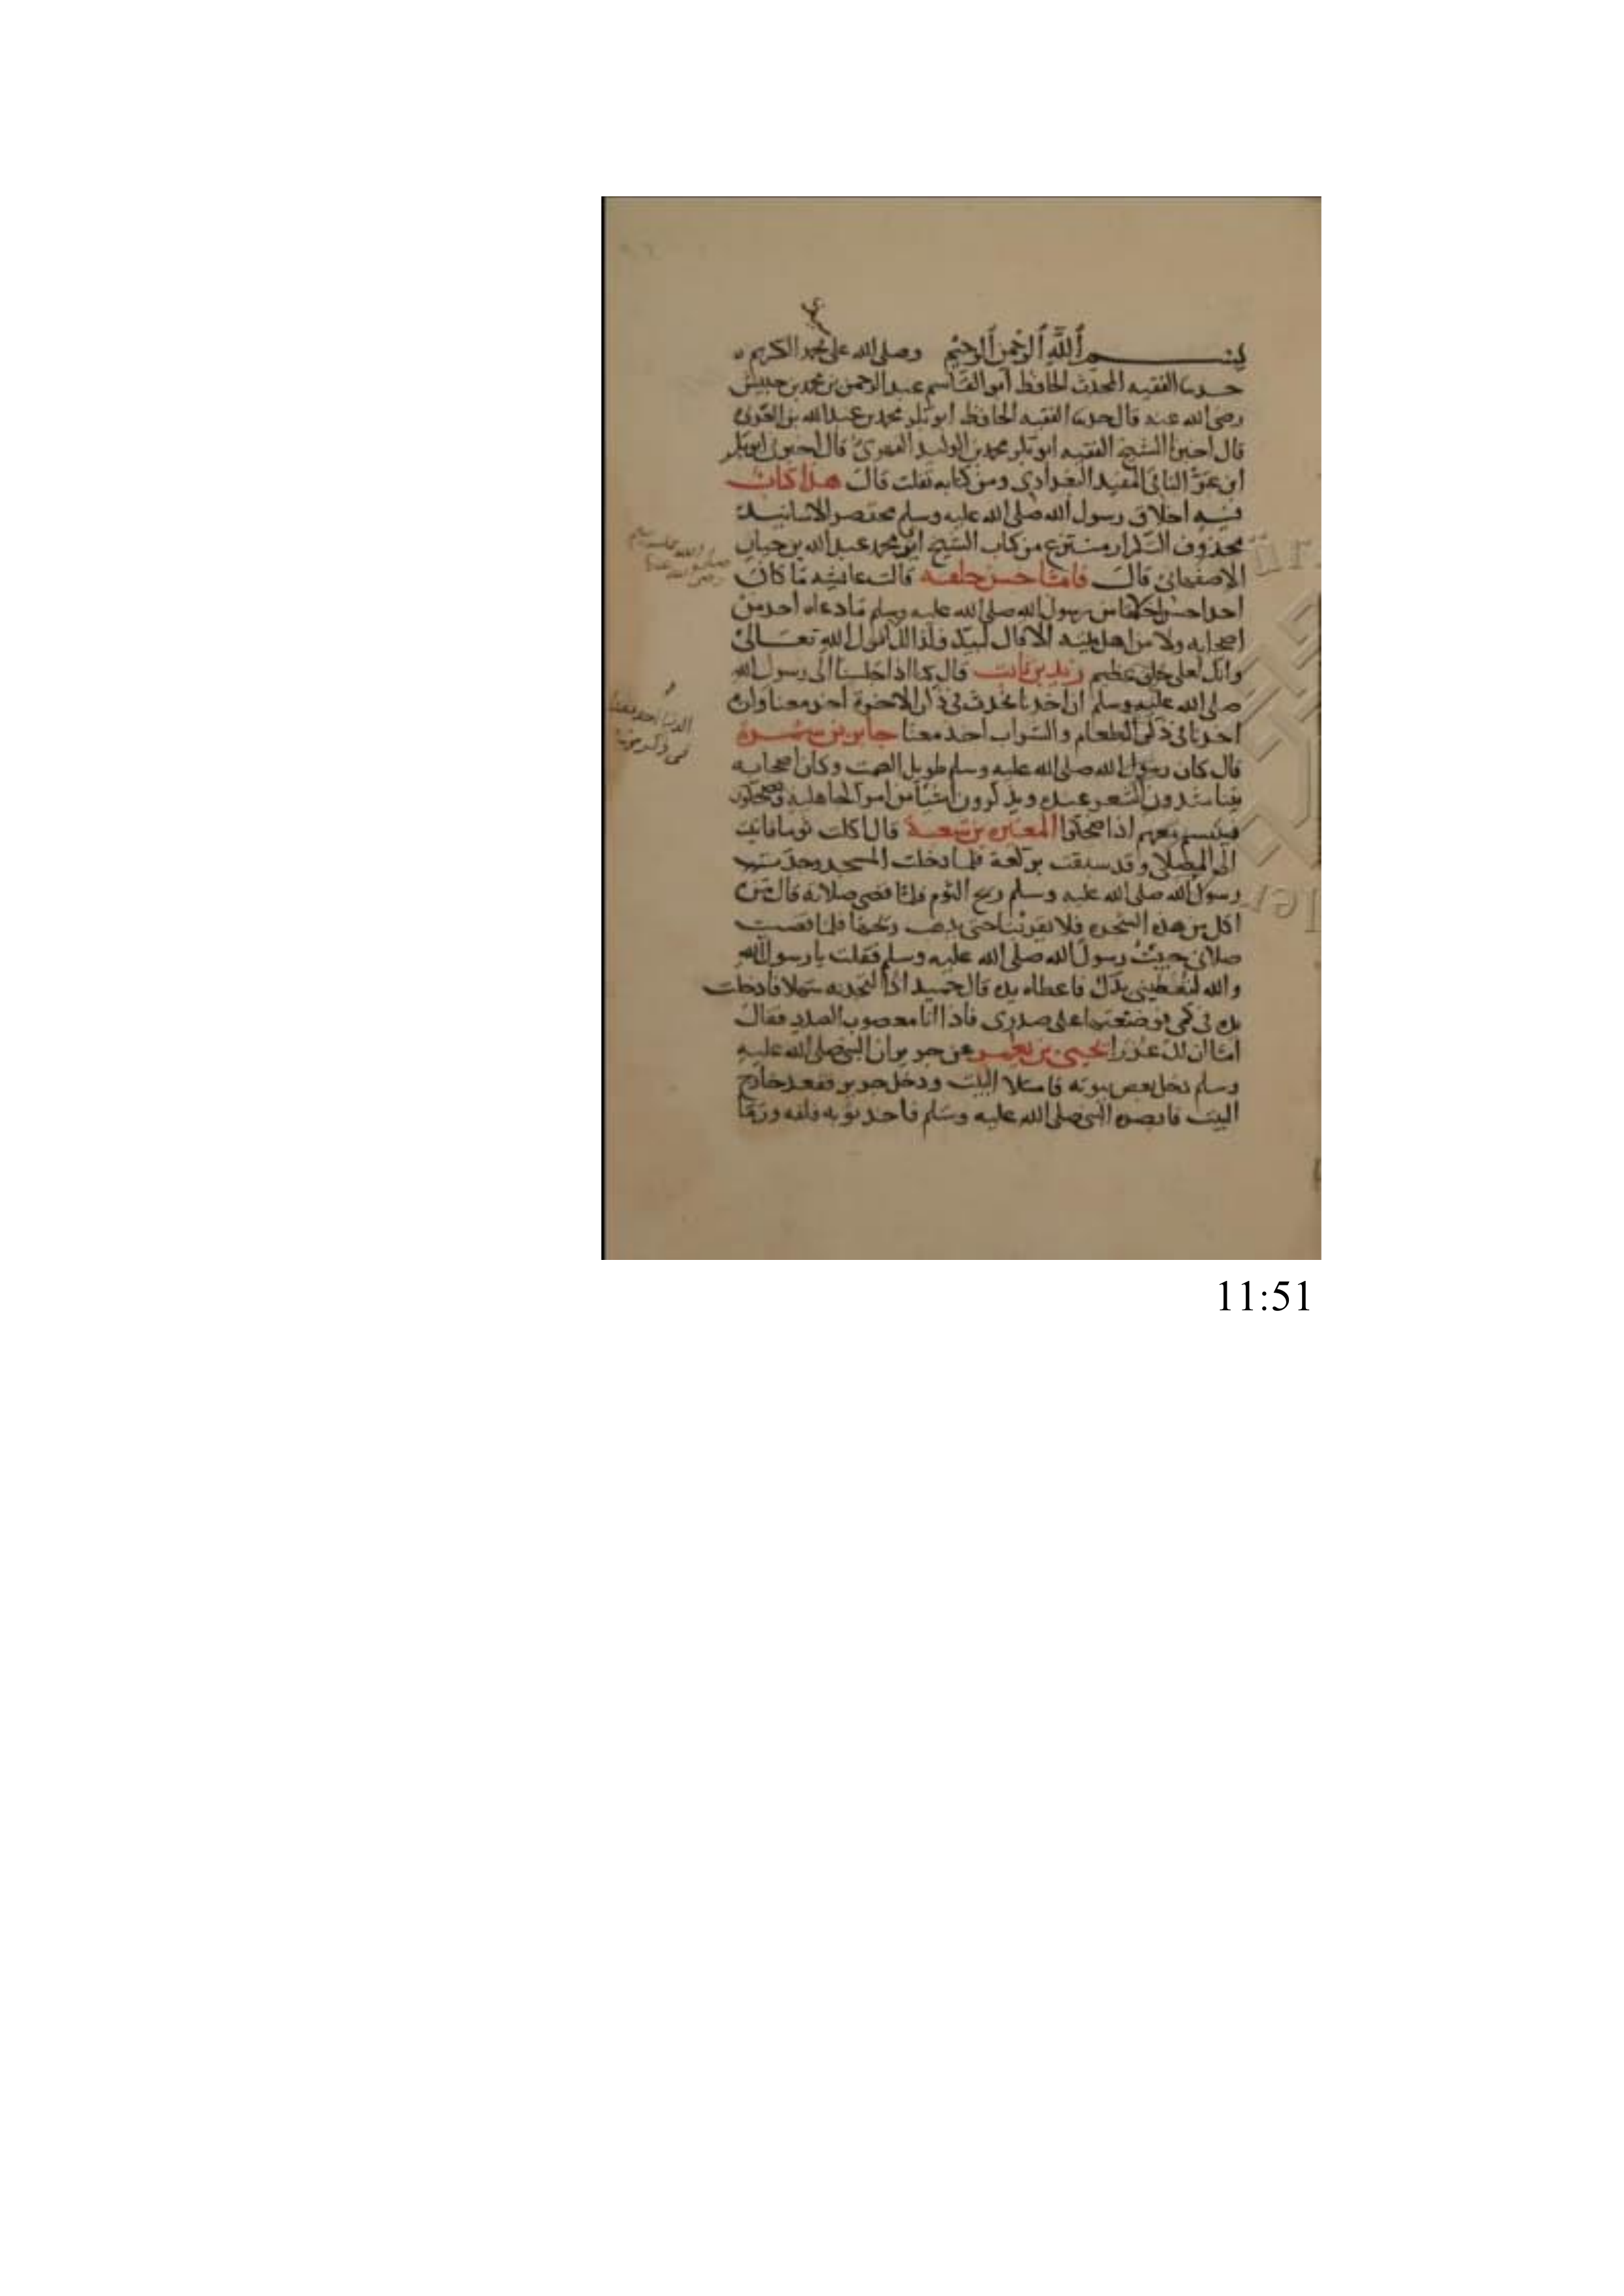 بسم الله الرحمن الرحيم وصلى الله على محمد الكريم
حدثنا الفقيه المحدث الحافظ أبو القاسم عبد الرحمن بن محمد بن حبيش
رضى الله عنه قال حدثنا الفقيه الحافظ ابو بكر محمد بن عبد الله بن العربى
قال اخبرنا الشيخ الفقيه ابو بكر محمد بن الوليد الفهرى قال اخبرنى ابو بكر
المفيد البغدادى ومن كتابه نقلت قال هذا كتاب
فيه اخلاق رسول الله صلى الله عليه وسلم مختصر الاسانيد
محذوف التكرار منتزع من كتاب الشيخ ابى محمد عبد الله بن حيان
الاصفهانى قال فامّا حسن خلقه قالت عائشه مّا كان
احد احسن اخلاقا من رسول الله صلى الله عليه وسلم مّا دعاه احد من
اصحابه ولا من اهل بيته الا قال لبيك ولذلك انزل الله تعالى
وانك لعلى خلق عظيم زيد بن ثابت قال كنا اذا جلسنا الى رسول الله
صلى الله عليه وسلم ان اخذنا بحديث فى ذكر الاخرة اخذ معنا وان
اخذنا فى ذكر الطعام والشراب اخذ معنا جابر بن سمرة
قال كان رسول الله صلى الله عليه وسلم طويل الصمت وكان اصحابه
يتناشدون الشعر عنده ويذكرون اشيآ من امر الجاهلية ويضحكون
فيتبسم معهم اذا ضحكوا المغيره بن شعبة قال اكلت ثوما فاتيت
الى المصلى وقد سبقت بركعة فلما دخلت المسجد وجد
رسول الله صلى الله عليه وسلم ريح الثوم فلمّا قضى صلاته قال مَن
اكل من هذه الشجره فلا يقربنا حتى يذهب ريحها فلمّا قضيت
صلاتى جيتُ رسول الله صلى الله عليه وسلم فقلت يا رسول الله
والله لتعطينى يدك فاعطاه يده قال حميد اذًا لتجدنه سهلا فادخلت
يده فى كمى فوضعتها على صدرى فاذا انا معصوب الصدر فقال
امّا ان لك عذرا يحيى بن يعمر عن جرير ان النبى صلى الله عليه
وسلم دخل بعض بيوته فامتلا البيت ودخل جرير فقعد خارج
البيت فابصره النبى صلى الله عليه وسلم فاخذ ثوبه فلفه ورمّا
11:51